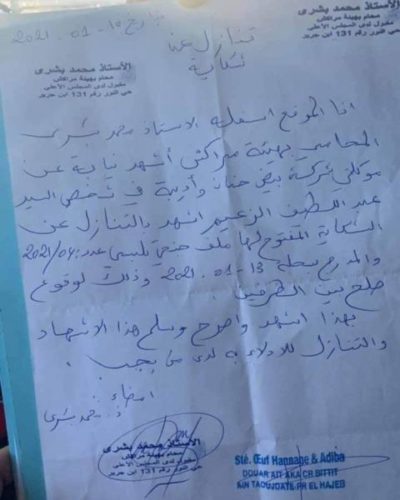 بتاريخ 15-01-2021
تنازل عن
شكاية
الأستاذ محمد بشرى
محام بهيئة مراكش
مقبول لدى المجلس الأعلى
حي النور رقم 131 ابن جرير
الأستاذ محمد بشرى
محام بهيئة مراكش
مقبول لدى المجلس الأعلى
حي النور رقم 131 ابن جرير
انا الموقع اسفله الاستاذ محمد بشرى
المحامي بهيئة مراكش أشهد نيابة عن
موكلتي شركة بيض حنان وأديبة في شخص السيد
عبد اللطيف الزعيم اشهد بالتنازل عن
الشكاية المفتوح لها ملف جنحي تلبسي عدد: 2021/04
والمدرج بجلسة 13-01-2021 وذلك لوقوع
صلح بين الطرفين.
بهذا اشهد واصرح وسلم هذا الاشهاد
والتنازل للادلاء به لدى من يجب.
امضاء
ذ. محمد بشرى
الأستاذ محمد بشرى
محام بهيئة مراكش
مقبول لدى المجلس الأعلى
حي النور رقم 131 ابن جرير
Sté. Œuf Hannane & Adiba
DOUAR AIT AKA CR BITTIT
AIN TAOUJDATE PR EL HAJEB